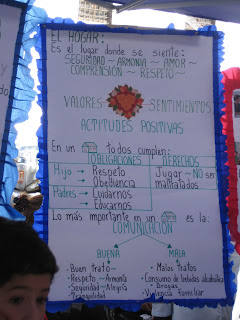 EL HOGAR:
Es el lugar donde se siente:
SEGURIDAD ~ ARMONIA ~ AMOR ~
COMPRENSIÓN ~ RESPETO ~
VALORES SENTIMIENTOS
ACTITUDES POSITIVAS
En un todos cumplen:
OBLIGACIONES DERECHOS
Hijo → Respeto Jugar - NO ser
Obediencia maltratados
Padres → Cuidarnos
Educarnos
Lo más importante en un es la:
COMUNICACIÓN
BUENA MALA
- Buen trato ~ • Malos Tratos
- Respeto ~ Armonía • Consumo de bebidas alcohólica
- Seguridad ~ Alegría Drogas
Tranquilidad • Violencia Familiar